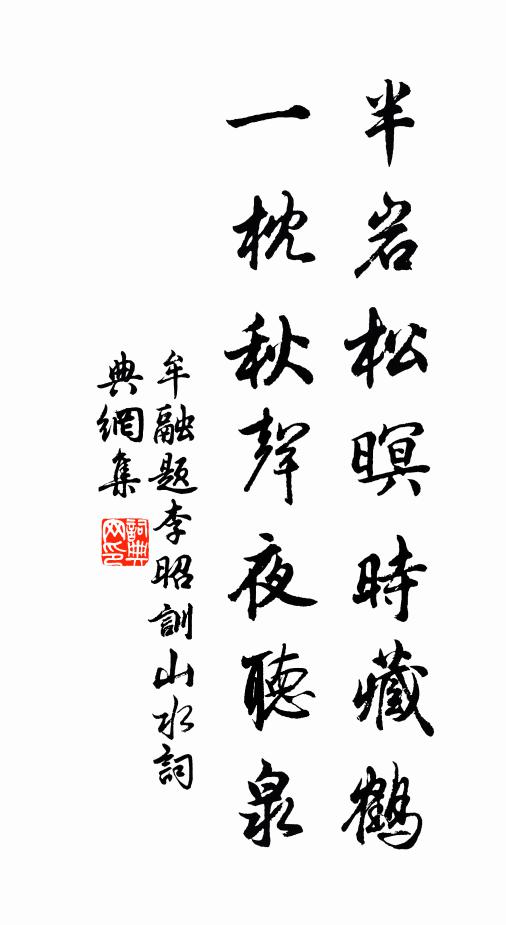 半岩松暝時藏鶴
一枕秋聲夜聽泉
牟融題李昭訓山水詞
典網集
詞典网印